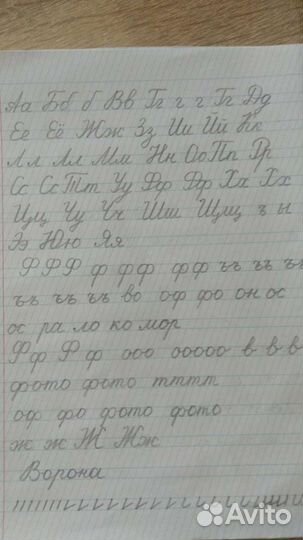 Аа Бб б Вв Гг г г Гг Дд
Ее Ёё Жж Зз Ии Ий Кк
Лл Лл Мм Нн Оо Пп Рр
Сс Сс Тт Уу Фф Фф Хх Хх
Цц Чу Чч Шш Щщ ъ ы
Ээ Юю Яя
Ф Ф Ф ф ф ф ф ф ъ ъ ъ ъ ъ ъ
ъ ъ ъ ъ ъ ъ во оф фо он ос
ос ра ло ко мор
Ф ф Ф ф ооо ооооо в в в
фото фото тттт
оф фо фото фото
ж ж Ж Жж
Ворона
Avito